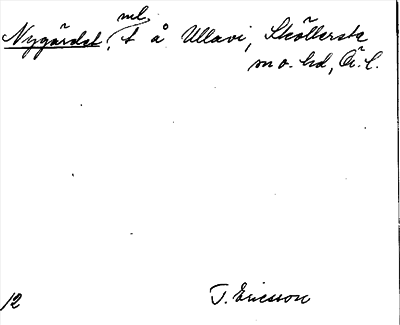 Nygärdet, ml. t å Ullavi, Sköllersta
m o. hd, Ö. l.
12 T. Ericsson